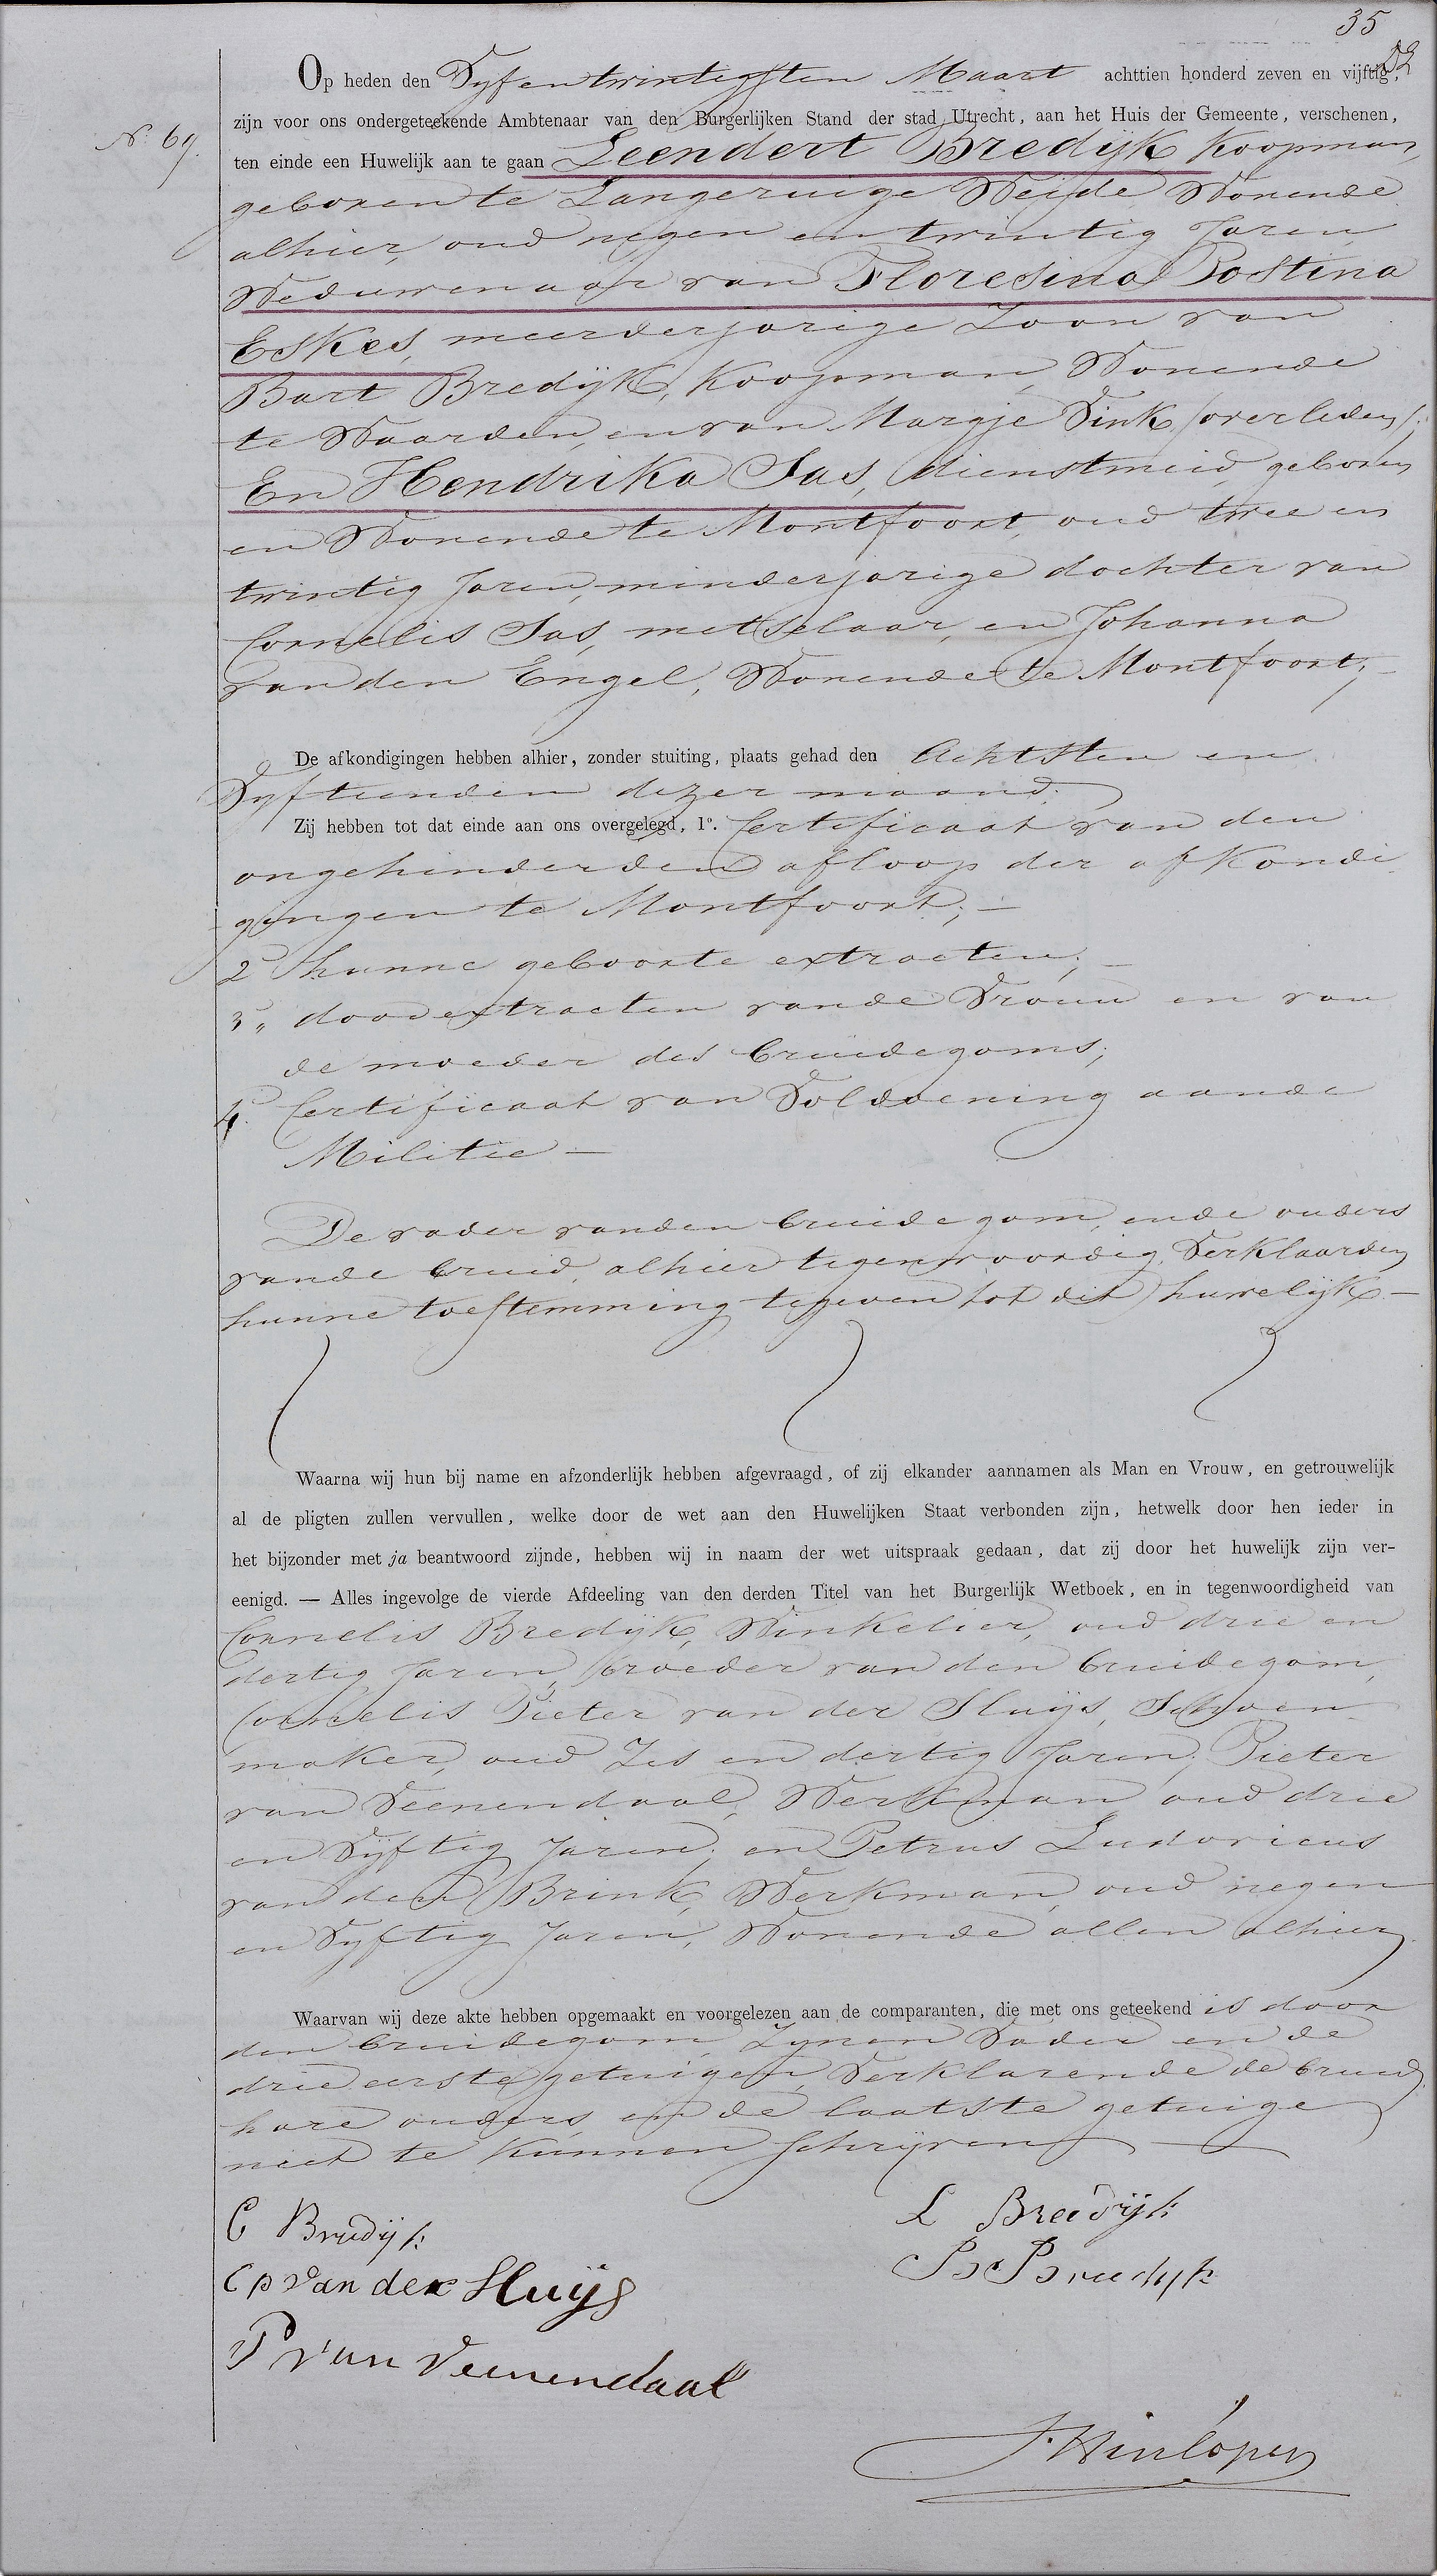 35
Op heden den Vyfentwintigsten Maart achttien honderd zeven en vijftig,
zijn voor ons ondergeteekende Ambtenaar van den Burgerlijken Stand der stad Utrecht, aan het Huis der Gemeente, verschenen,
No. 69.
ten einde een Huwelijk aan te gaan Leendert Bredijk Koopman,
geboren te Langeruige Weijde Wonende
alhier, oud negen en twintig Jaren,
Weduwenaar van Floresina Postina
Eskes, meerderjarige Zoon van
Bart Bredijk, Koopman, Wonende
te Waarden, en van Margje Vink /overleden/;
En Hendrika Sas, dienstmeid, geboren
en Wonende te Montfoort, oud twee en
twintig Jaren, minderjarige dochter van
Cornelis Sas, metselaar, en Johanna
van den Engel, Wonende te Montfoort;
De afkondigingen hebben alhier, zonder stuiting, plaats gehad den Achtsten en
Vyftienden dezer maand.
Zij hebben tot dat einde aan ons overgelegd, 1o. Certificaat van den
ongehinderden afloop der afkondi
gingen te Montfoort; —
2o hunne geboorte extracten; —
3„ dood extracten van de Vrouw en van
de moeder des bruidegoms;
4o. Certificaat van Voldoening aan de
Militie —
De vader van den bruidegom, en de ouders
van de bruid, alhier tegenwoordig, Verklaarden
hunne toestemming te geven tot dit huwelijk —
Waarna wij hun bij name en afzonderlijk hebben afgevraagd, of zij elkander aannamen als Man en Vrouw, en getrouwelijk
al de pligten zullen vervullen, welke door de wet aan den Huwelijken Staat verbonden zijn, hetwelk door hen ieder in
het bijzonder met ja beantwoord zijnde, hebben wij in naam der wet uitspraak gedaan, dat zij door het huwelijk zijn ver-
eenigd. — Alles ingevolge de vierde Afdeeling van den derden Titel van het Burgerlijk Wetboek, en in tegenwoordigheid van
Cornelis Bredijk, Winkelier, oud drie en
dertig Jaren, broeder van den bruidegom,
Cornelis Pieter van der Sluijs, Schoen
maker, oud Zes en dertig Jaren; Pieter
van Veenendaal, Werkman, oud drie
en Vijftig Jaren; en Petrus Ludovicus
van den Brink, Werkman, oud negen
en Vyftig Jaren, Wonende allen alhier,
Waarvan wij deze akte hebben opgemaakt en voorgelezen aan de comparanten, die met ons geteekend is door
den bruidegom, Zynen Vader en de
drie eerste getuigen, Verklarende de bruid,
hare ouders, en de laatste getuige
niet te kunnen schrijven —
C Bredijk L Breedijk
C p van der Sluijs B Breedijk
P van Veenendaal